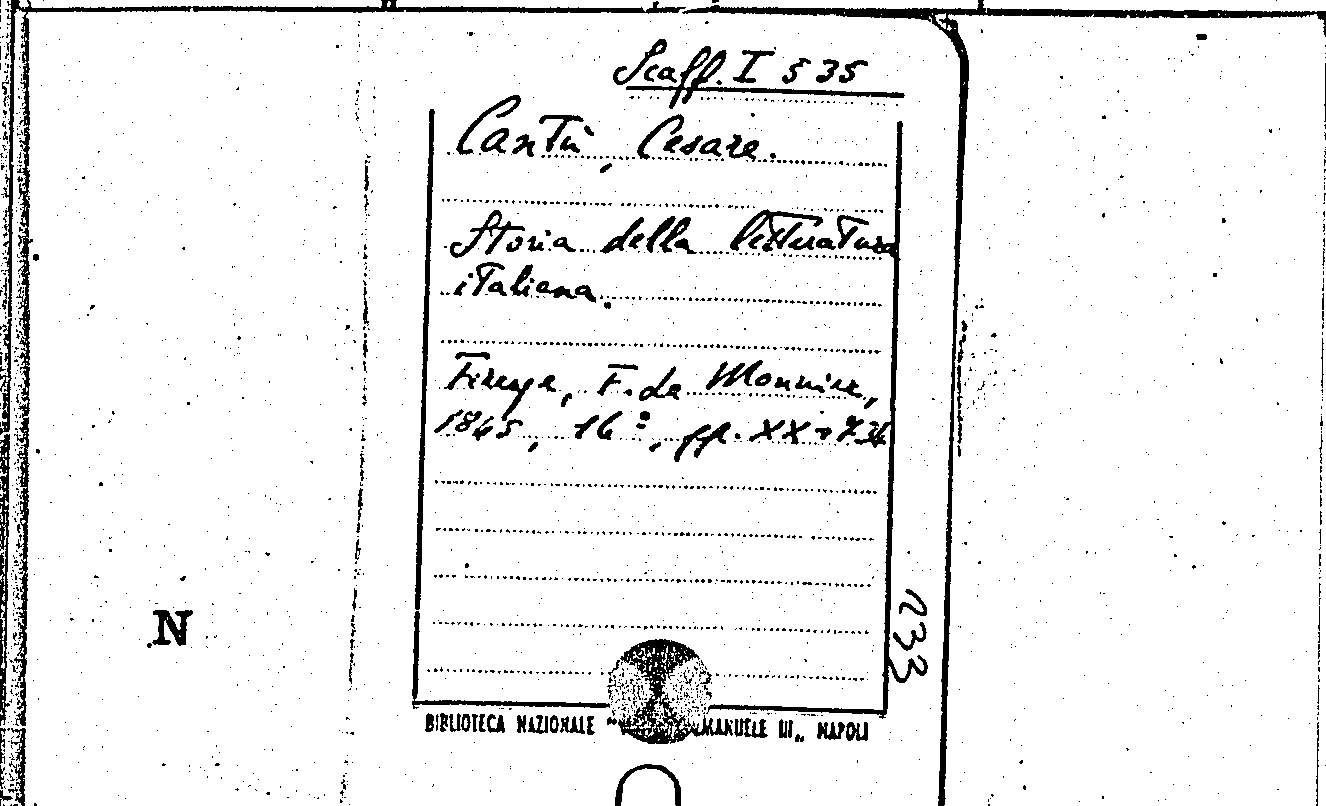 Scaff. I 5 35
Cantù, Cesare.
Storia della letteratura
italiana.
Firenze, F. Le Monnier,
1865, 16º, pp. XX+7
233
N
BIBLIOTECA NAZIONALE " MANUELE III„ NAPOLI